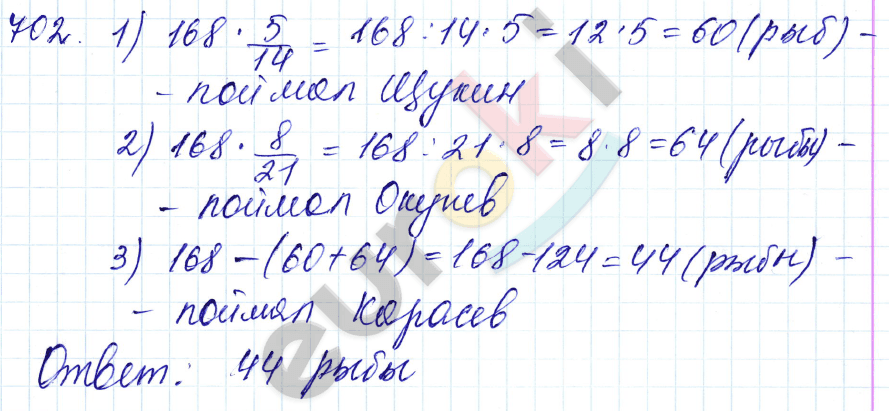 702. 1) 168 · 5/14 = 168 : 14 · 5 = 12 · 5 = 60 (рыб) –
– поймал Щукин
2) 168 · 8/21 = 168 : 21 · 8 = 8 · 8 = 64 (рыбы) –
– поймал Окунев
3) 168 – (60 + 64) = 168 – 124 = 44 (рыбы) –
– поймал Карасев
Ответ: 44 рыбы
euroki